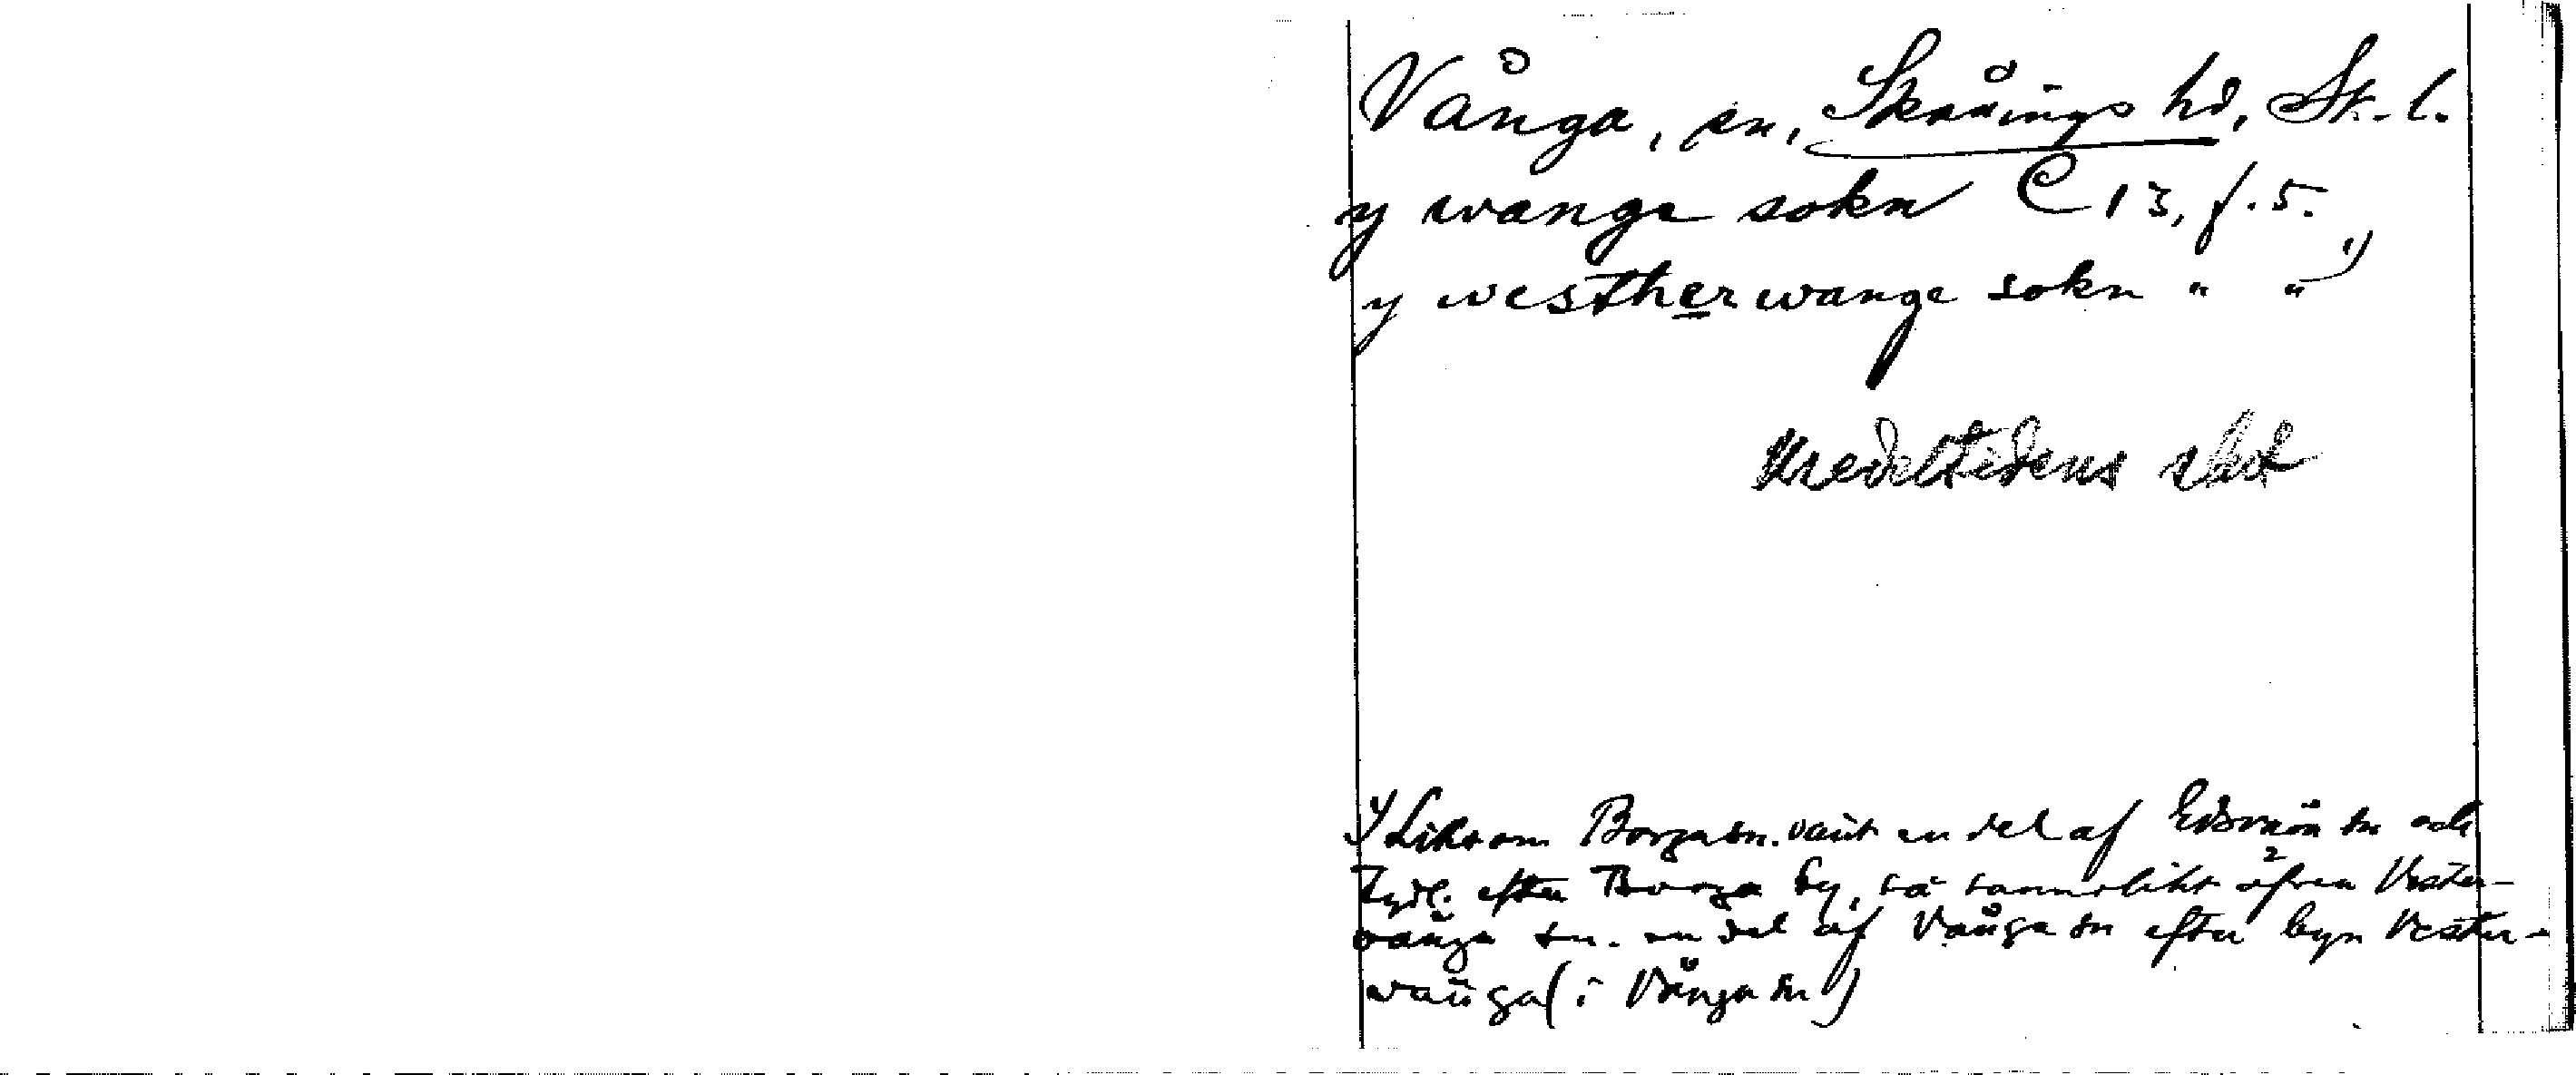 Vånga, sn, Skånings hd, Sk. l.
y wange sokn C 13, f. 5.
y westherwange sokn " " 1)
Medeltidens slut
1) Liksom Borga sn. varit en del af Edsvära sn och
tydl. efter Borga by, så sannolikt äfven Vester-
vånga sn. en del af Vånga sn efter byn Vester-
vånga (i Vånga sn)